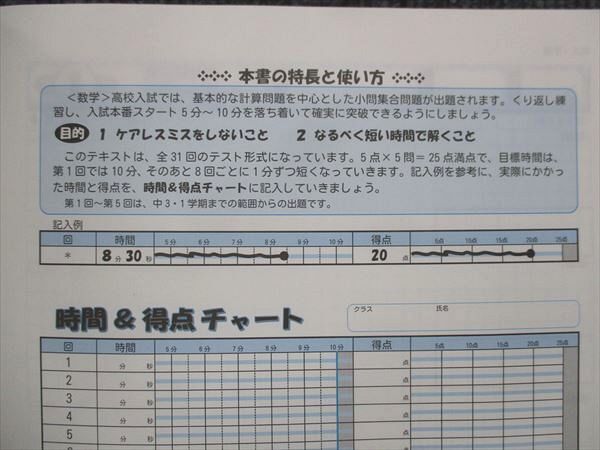 本書の特長と使い方
<数学>高校入試では、基本的な計算問題を中心とした小問集合問題が出題されます。くり返し練
習し、入試本番スタート5分〜10分を落ち着いて確実に突破できるようにしましょう。
目的 1 ケアレスミスをしないこと 2 なるべく短い時間で解くこと
このテキストは、全31回のテスト形式になっています。5点×5問=25点満点で、目標時間は、
第1回では10分、そのあと8回ごとに1分ずつ短くなっていきます。記入例を参考に、実際にかかっ
た時間と得点を、時間&得点チャートに記入していきましょう。
第1回〜第5回は、中3・1学期までの範囲からの出題です。
記入例
回 時間 5分 6分 7分 8分 9分 10分 得点 5点 10点 15点 20点 25点
* 8分30秒 20点
時間&得点チャート
クラス 氏名
回 時間 5分 6分 7分 8分 9分 10分 得点 5点 10点 15点 20点 25点
1 分 秒 点
2 分 秒 点
3 分 秒 点
4 分 秒 点
5 分 秒 点